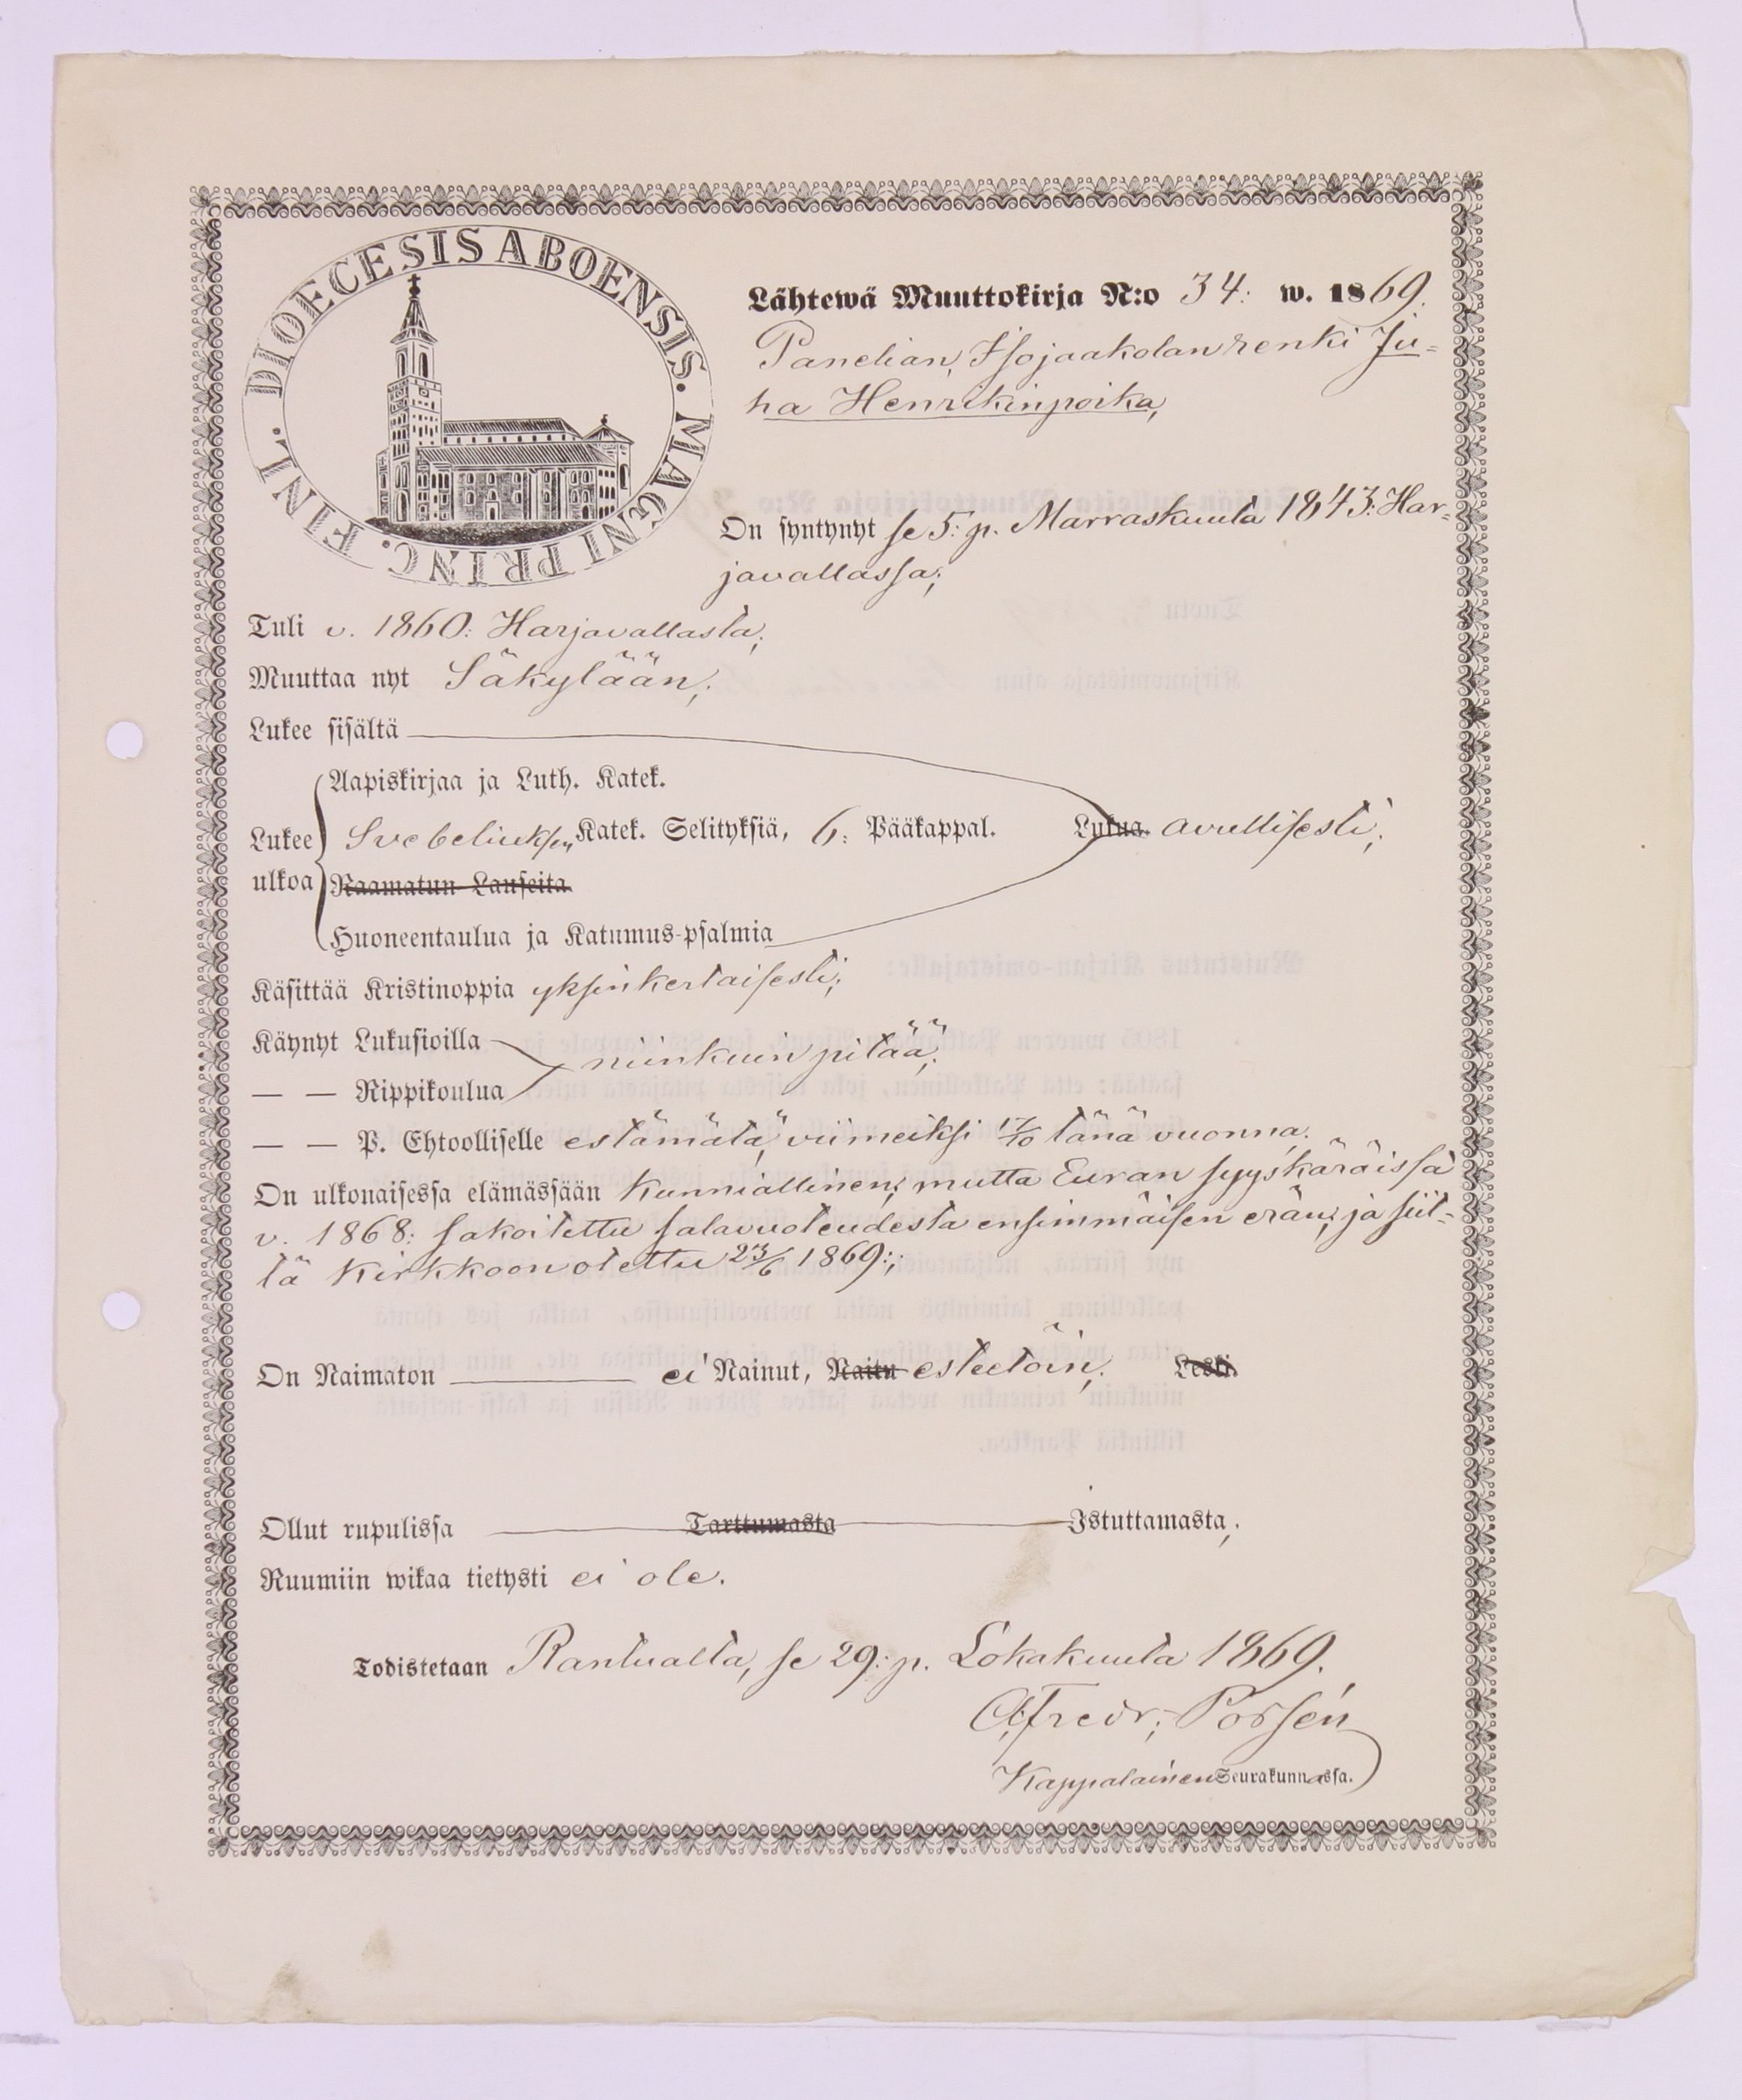 DIOECESIS ABOENSIS. MAGNI PRINC. FINL.
Lähtewä Muuttokirja N:o 34: w. 1869.
Panelian, Isojaakolan renki Ju=
ha Henrikinpoika,
On syntynyt se 5: p. Marraskuuta 1843: Har=
javallassa;
Tuli v. 1860: Harjavallasta;
Muuttaa nyt Säkylään;
Lukee sisältä
Aapiskirjaa ja Luth. Katek.
Lukee ulkoa Svebeliuksen Katek. Selityksiä, 6: Pääkappal. Lukua. avullisesti;
Raamatun Lauseita
Huoneentaulua ja Katumus-psalmia
Käsittää Kristinoppia yksinkertaisesti;
Käynyt Lukusioilla
niinkuin pitää;
— — Rippikoulua
— — P. Ehtoolliselle estämätä, viimeiksi 17/10 tänä vuonna.
On ulkonaisessa elämässään kunniallinen; mutta Euran syyskäräissä
v. 1868: sakoitettu salavuoteudesta ensimmäisen erän; ja siit=
tä kirkkoon otettu 23/6 1869:;
On Naimaton ei Nainut, Naitu esteetöin; Leski.
Ollut rupulissa Tarttumasta Istuttamasta;
Ruumiin wikaa tietysti ei ole.
Todistetaan Rantualta, se 29: p. Lokakuuta 1869.
Fredr; Possén
Kappalainen Seurakunnassa.